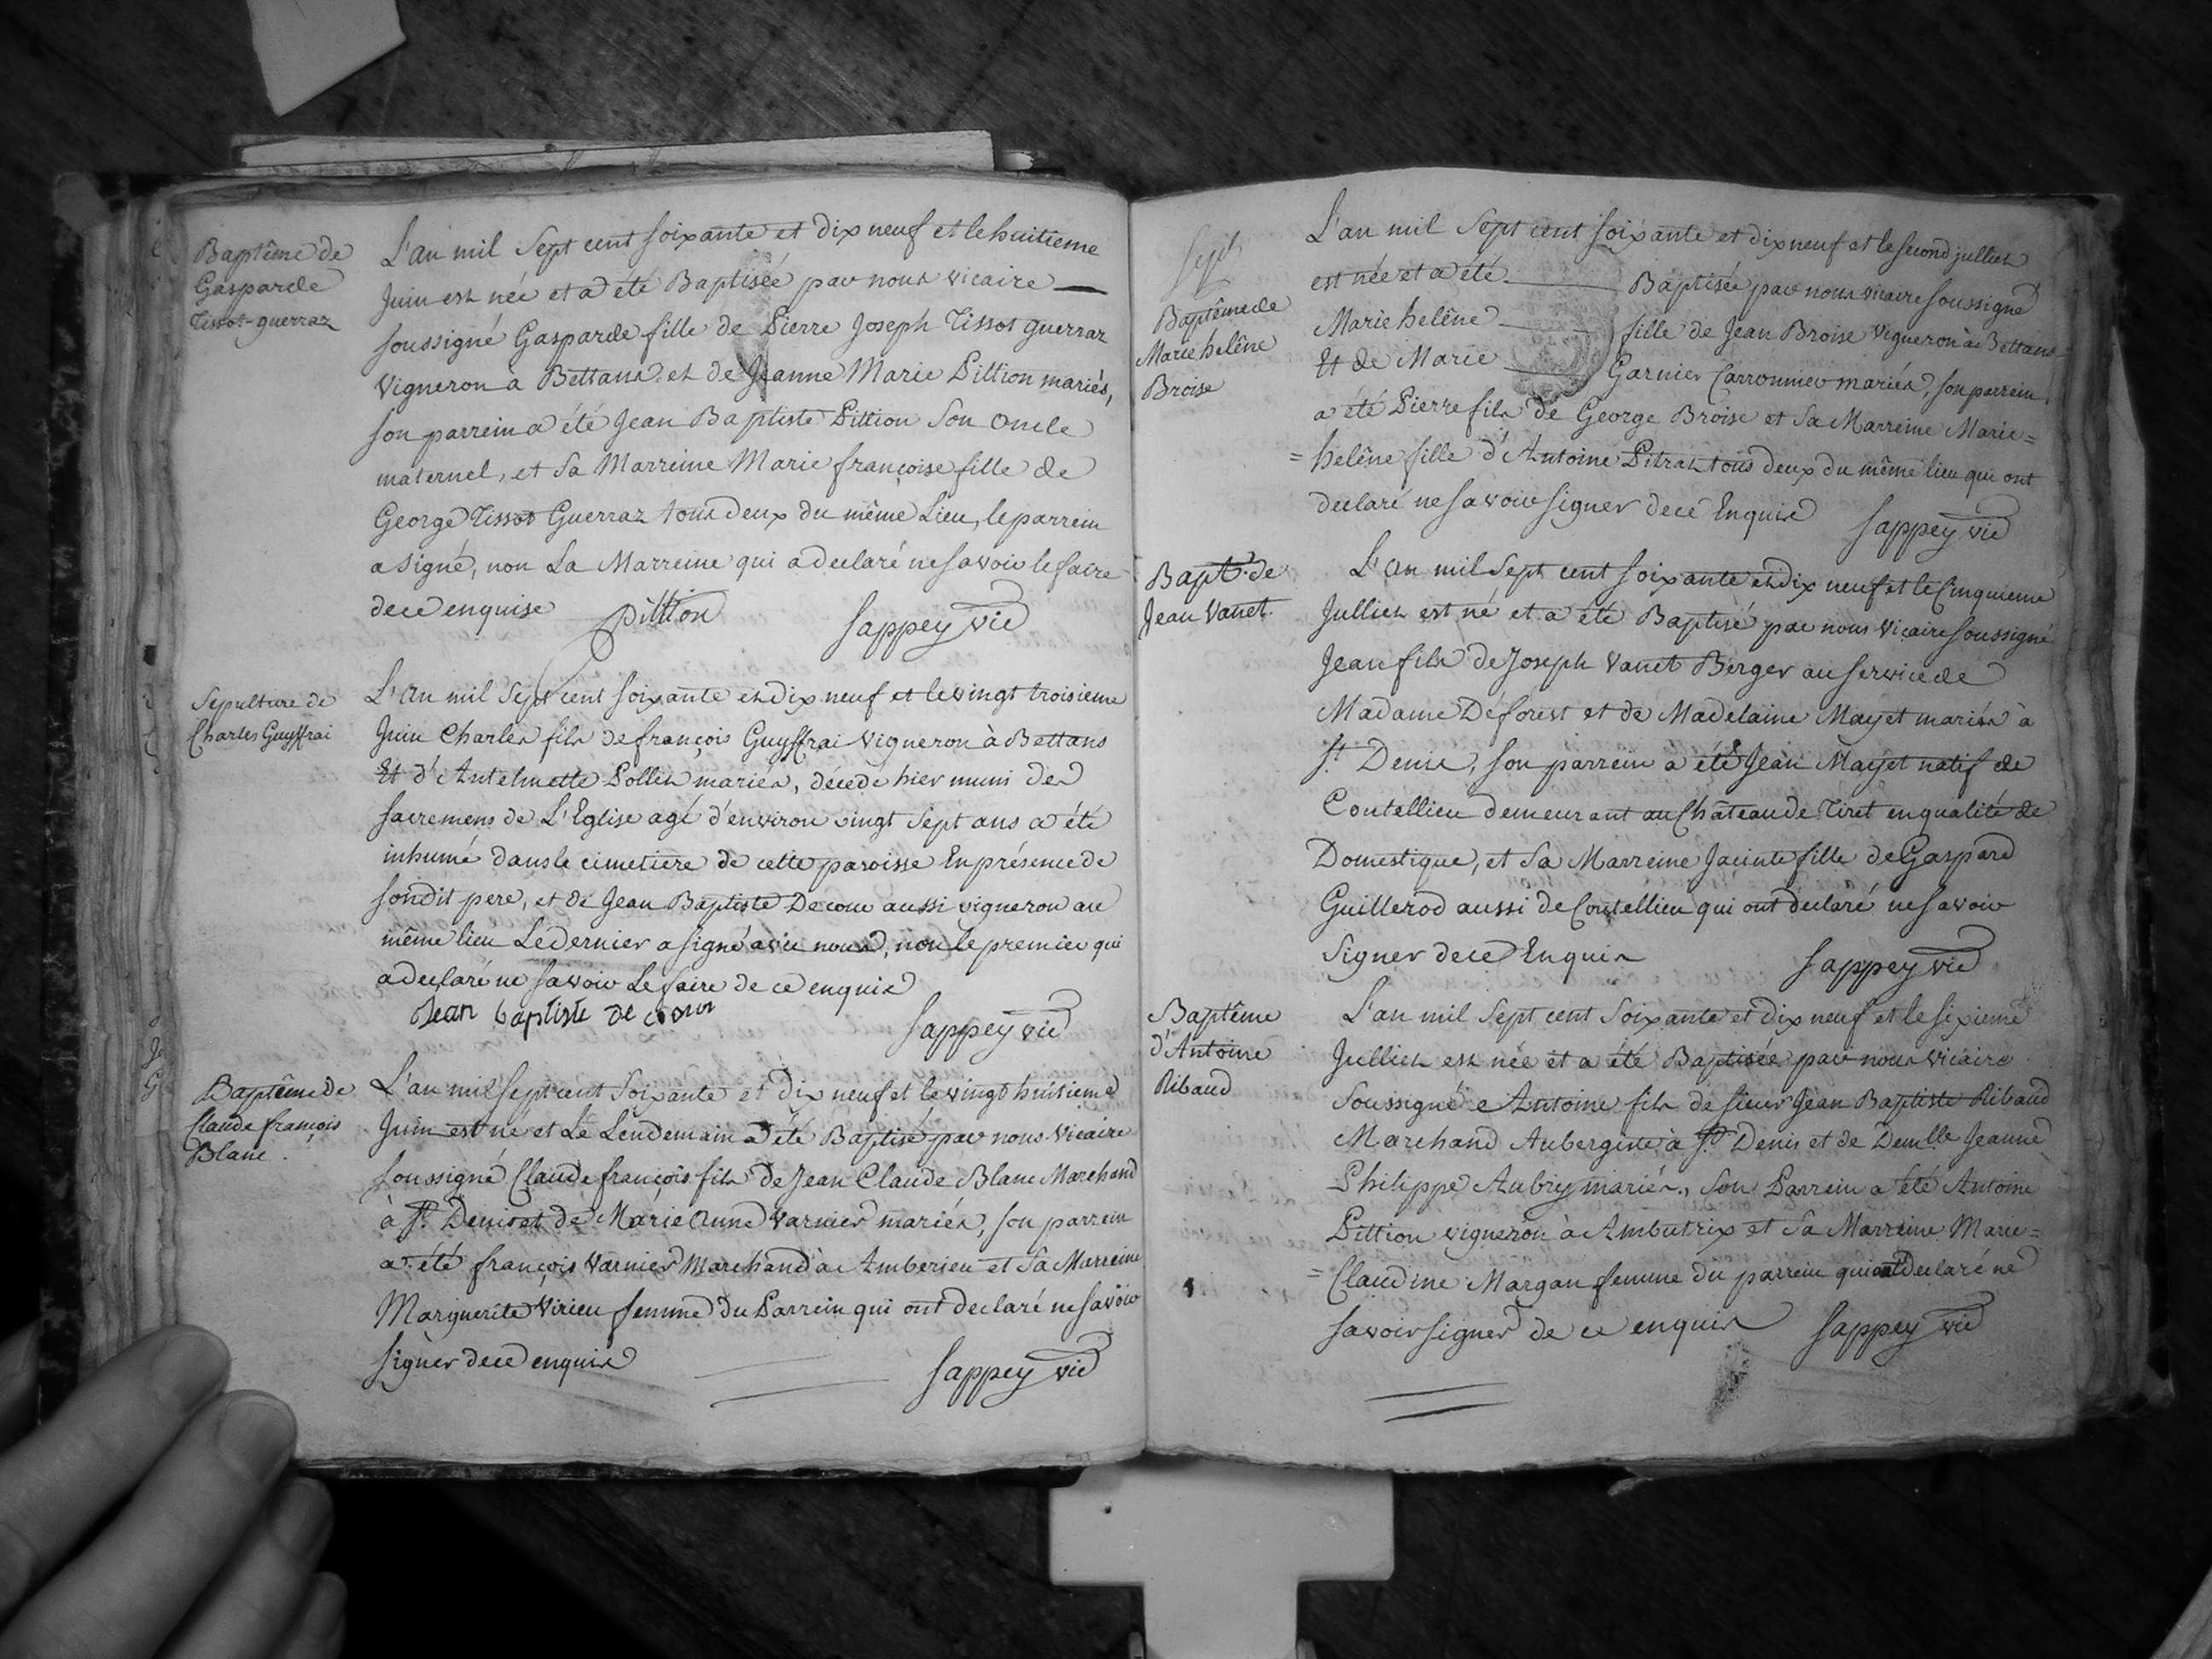 Baptême de
Gasparde
Tissot-guerraz
L'an mil Sept cent soixante et dix neuf et le huitieme
Juin est née et a été Baptisée par nous vicaire
soussigné Gasparde fille de Pierre Joseph Tissot guerraz
Vigneron à Bettans et de Jeanne Marie Pittion mariés,
son parrein a été Jean Baptiste Pittion Son Oncle
maternel, et Sa Marreine Marie françoise fille de
George Tissot Guerraz tous deux du même Lieu, le parrein
a signé, non La Marreine qui a declaré ne savoir le faire
de ce enquise Pittion Sappey vic
Sepulture de
Charles Guyffrai
L'an mil Sept cent soixante et dix neuf et le vingt troisieme
Juin Charles fils de françois Guyffrai Vigneron à Bettans
Et d'Antelmette Pollet mariés, décédé hier muni des
sacremens de L'Eglise agé d'environ vingt Sept ans a été
inhumé dans le cimetiere de cette paroisse En présence de
sondit pere, et de Jean Baptiste Decour aussi vigneron au
même lieu Le dernier a signé avec nous, non le premier qui
a declaré ne savoir Le faire de ce enquis
Jean baptiste de cour
Sappey vic
Baptême de
Claude françois
Blanc.
L'an mil sept cent Soixante et dix neuf et le vingt huitieme
Juin est né et Le Lendemain a été Baptisé par nous Vicaire
soussigné Claude françois fils de Jean Claude Blanc Marchand
à St. Denis et de Marie Anne Varnier mariés, son parrein
a été françois Varnier Marchand à Amberieu et Sa Marreine
Marguerite Virieu femme du Parrein qui ont declaré ne savoir
signer de ce enquis Sappey vic
Sept
Baptême de
Marie helêne
Broise
L'an mil Sept cent soixante et dix neuf et le second jullier
est née et a été Baptisée par nous vicaire soussigné
Marie helêne fille de Jean Broise Vigneron à Bettans
Et de Marie Garnier Carronnier mariés, son parrein
a été Pierre fils de George Broise et Sa Marreine Marie=
=helêne fille d'Antoine Pitrat tous deux du même lieu qui ont
declaré ne savoir signer de ce Enquis Sappey vic
Bapt. de
Jean Vanet.
L'an mil Sept cent soixante et dix neuf et le Cinquieme
Jullier est né et a été Baptisé par nous Vicaire soussigné
Jean fils de Joseph Vanet Berger au service de
Madame Déforest et de Madelaine Mayet mariés à
St. Denis, son parrein a été Jean Mayet natif de
Coutellieu demeurant au Château de Tiret en qualité de
Domestique, et Sa Marreine Jacinte fille de Gaspard
Guillerod aussi de Coutellieu qui ont declaré ne savoir
Signer de ce Enquis Sappey vic
Baptême
d'Antoine
Ribaud
L'an mil Sept cent Soixante et dix neuf et le sixieme
Jullier est née et a été Baptisée par nous vicaire
Soussigné e Antoine fils de sieur Jean Baptiste Ribaud
Marchand Aubergiste à St. Denis et de Demlle Jeanne
Philippe Aubry mariés., Son Parrein a été Antoine
Pittion vigneron à Ambutrix et Sa Marreine Marie=
=Claudine Margan femme du parrein qui ont declaré ne
savoir signer de ce enquis Sappey vic